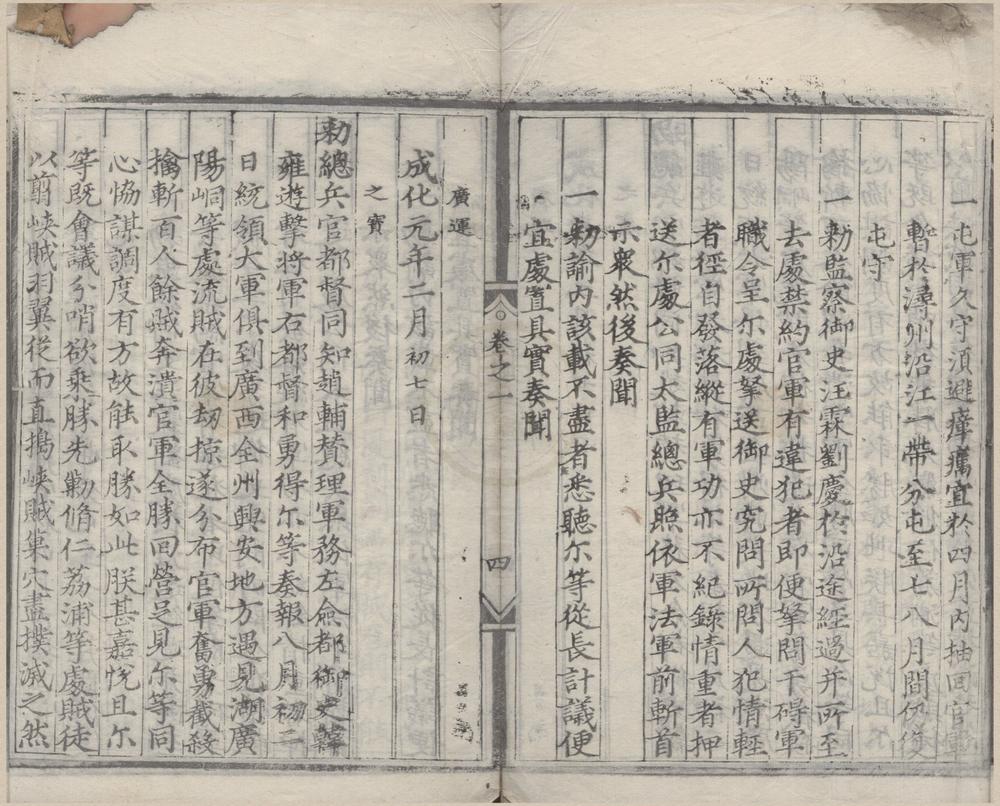 一屯軍久守須避瘴癘宜於四月內抽回官軍
暫於潯州沿江一帶分屯至七八月間仍復
屯守
一勅監察御史汪霖劉慶於沿途經過并所至
去處禁約官軍有違犯者即便拏問干碍軍
職令呈尔處拏送御史究問所問人犯情輕
者徑自發落縱有軍功亦不紀錄情重者押
送尔處公同太監總兵照依軍法軍前斬首
示眾然後奏聞
一勅諭內該載不盡者悉聽尔等從長計議便
宜處置具實奏聞
卷之一
四
廣運
成化元年二月初七日
之寶
勅總兵官都督同知趙輔賛理軍務左僉都御史韓
雍遊擊將軍右都督和勇得尔等奏報八月初二
日統領大軍俱到廣西全州興安地方遇見湖廣
陽峒等處流賊在彼刼掠遂分布官軍奮勇截殺
擒斬百人餘賊奔潰官軍全勝回營足見尔等同
心協謀調度有方故能取勝如此朕甚嘉悅且尔
等既會議分哨欲乘勝先勦脩仁荔浦等處賊徒
以剪峽賊羽翼從而直搗峽賊巢穴盡撲滅之然